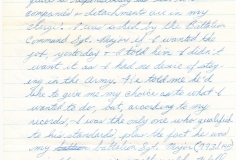 companies + detachments are in my
charge. I was asked by the Battalion
Command Sgt. Major if I wanted the
job yesterday + I told him I didn't
want it as I had no desire of stay-
ing in the Army. He told me he'd
like to give me my choice as to what I
wanted to do, but, according to my
records, I was the only one who qualified
to his standards, plus the fact he and
my Battalion Sgt. Major (792/